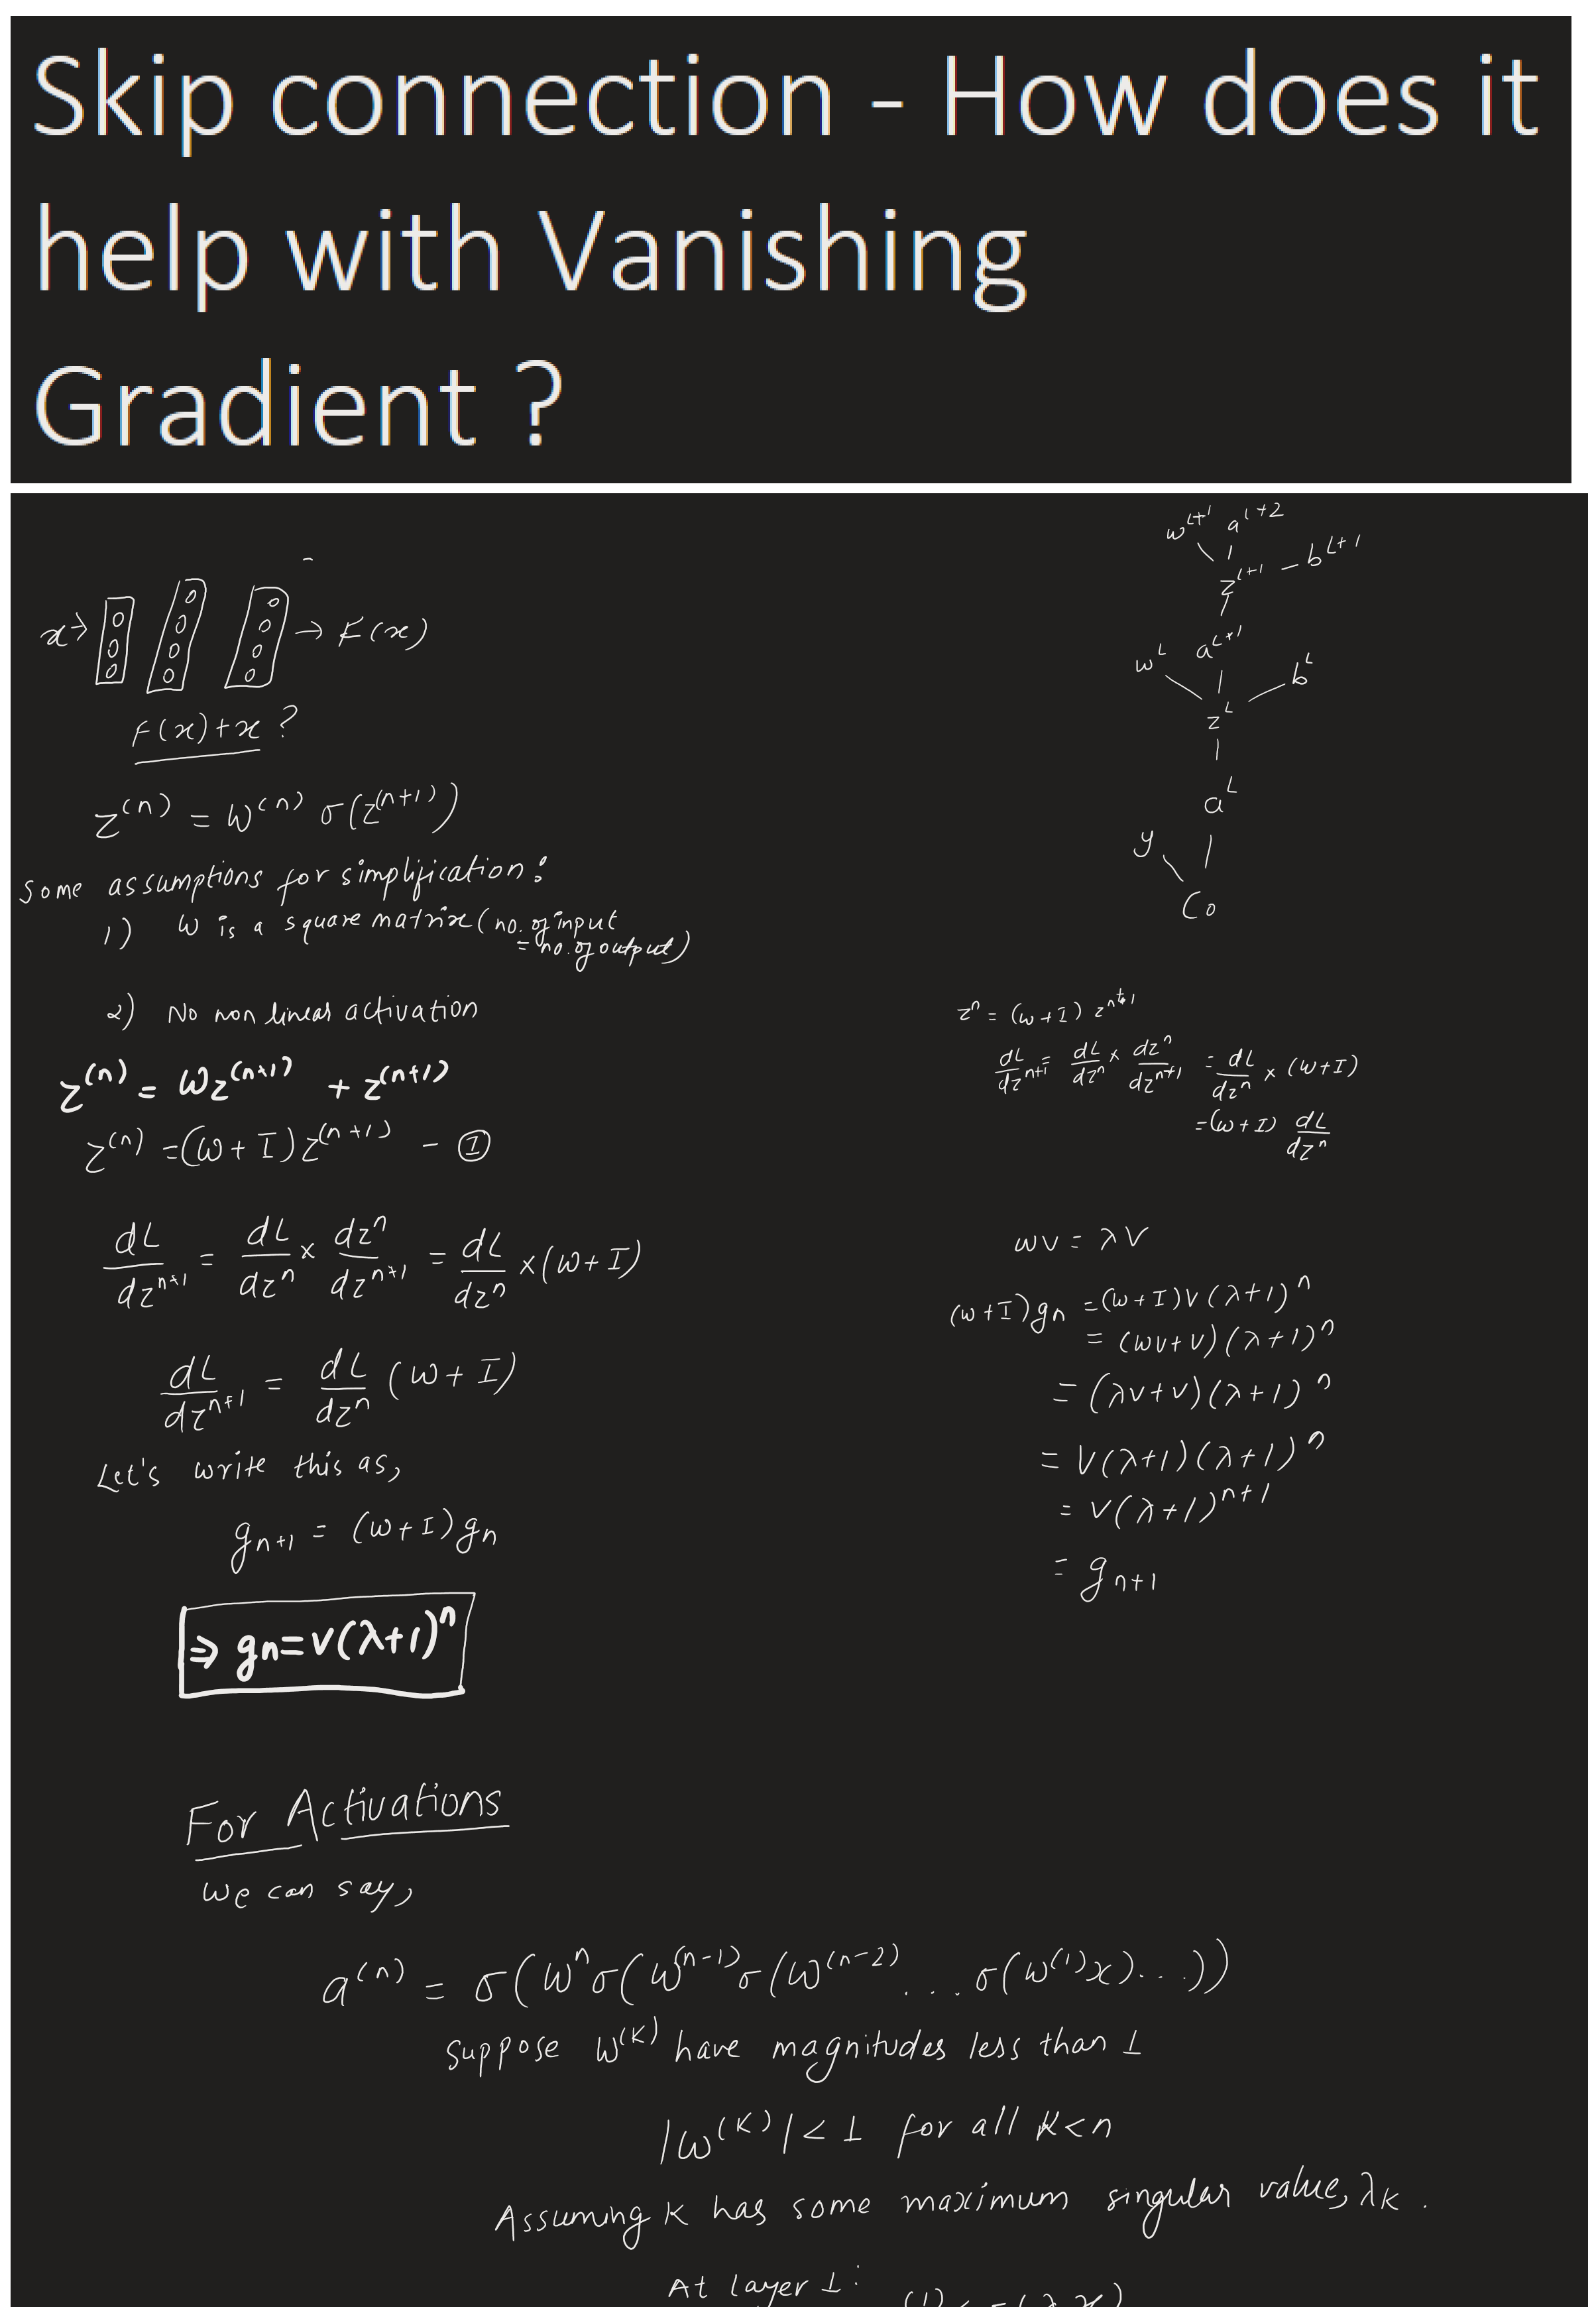 Skip connection - How does it
help with Vanishing
Gradient ?
x→ → F(x)
F(x)+x ?
z⁽ⁿ⁾ = W⁽ⁿ⁾ σ(z⁽ⁿ⁺¹⁾)
Some assumptions for simplification:
1) W is a square matrix (no. of input
= no. of output)
2) No non linear activation
z⁽ⁿ⁾ = Wz⁽ⁿ⁺¹⁾ + z⁽ⁿ⁺¹⁾
z⁽ⁿ⁾ = (W + I) z⁽ⁿ⁺¹⁾ - ①
dL/dzⁿ⁺¹ = dL/dzⁿ × dzⁿ/dzⁿ⁺¹ = dL/dzⁿ × (W + I)
dL/dzⁿ⁺¹ = dL/dzⁿ (W + I)
Let's write this as,
gₙ₊₁ = (W + I) gₙ
⇒ gn = V(λ+1)ⁿ
w^(L+1) a^(L+2)
z^(L+1) - b^(L+1)
w^L a^(L+1) b^L
z^L
a^L
y
Co
zⁿ = (W + I) zⁿ⁺¹
dL/dzⁿ⁺¹ = dL/dzⁿ × dzⁿ/dzⁿ⁺¹ = dL/dzⁿ × (W + I)
= (W + I) dL/dzⁿ
WV = λV
(W + I)gn = (W + I)V(λ+1)ⁿ
= (WV + V)(λ+1)ⁿ
= (λV + V)(λ+1)ⁿ
= V(λ+1)(λ+1)ⁿ
= V(λ+1)ⁿ⁺¹
= gₙ₊₁
For Activations
We can say,
a⁽ⁿ⁾ = σ(Wⁿσ(W⁽ⁿ⁻¹⁾σ(W⁽ⁿ⁻²⁾...σ(W⁽¹⁾x)...))
Suppose W⁽ᴷ⁾ have magnitudes less than 1
|W⁽ᴷ⁾| < 1 for all K<n
Assuming K has some maximum singular value, λK.
At layer 1: